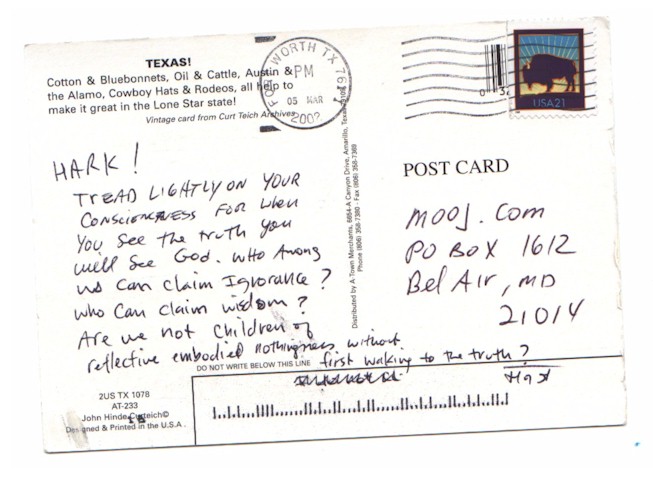 TEXAS!
Cotton & Bluebonnets, Oil & Cattle, Austin &
the Alamo, Cowboy Hats & Rodeos, all help to
make it great in the Lone Star state!
Vintage card from Curt Teich Archives
FORT WORTH TX 761
PM
05 MAR
2002
USA21
HARK!
TREAD LIGHTLY ON YOUR
FOR when
You see the truth you
will see God. Who Among
us can claim Ignorance?
Who Can claim wisdom?
Are we not Children of
reflective embodied nothingness without
first waking to the truth?
POST CARD
mooj.com
PO Box 1612
Bel Air, MD
21014
Distributed by A-Town Merchants, 6654-A Canyon Drive, Amarillo, Texas 79109
Phone (806) 358-7380 - Fax (806) 358-7389
DO NOT WRITE BELOW THIS LINE
2US TX 1078
AT-233
John Hinde Curteich©
Designed & Printed in the U.S.A.